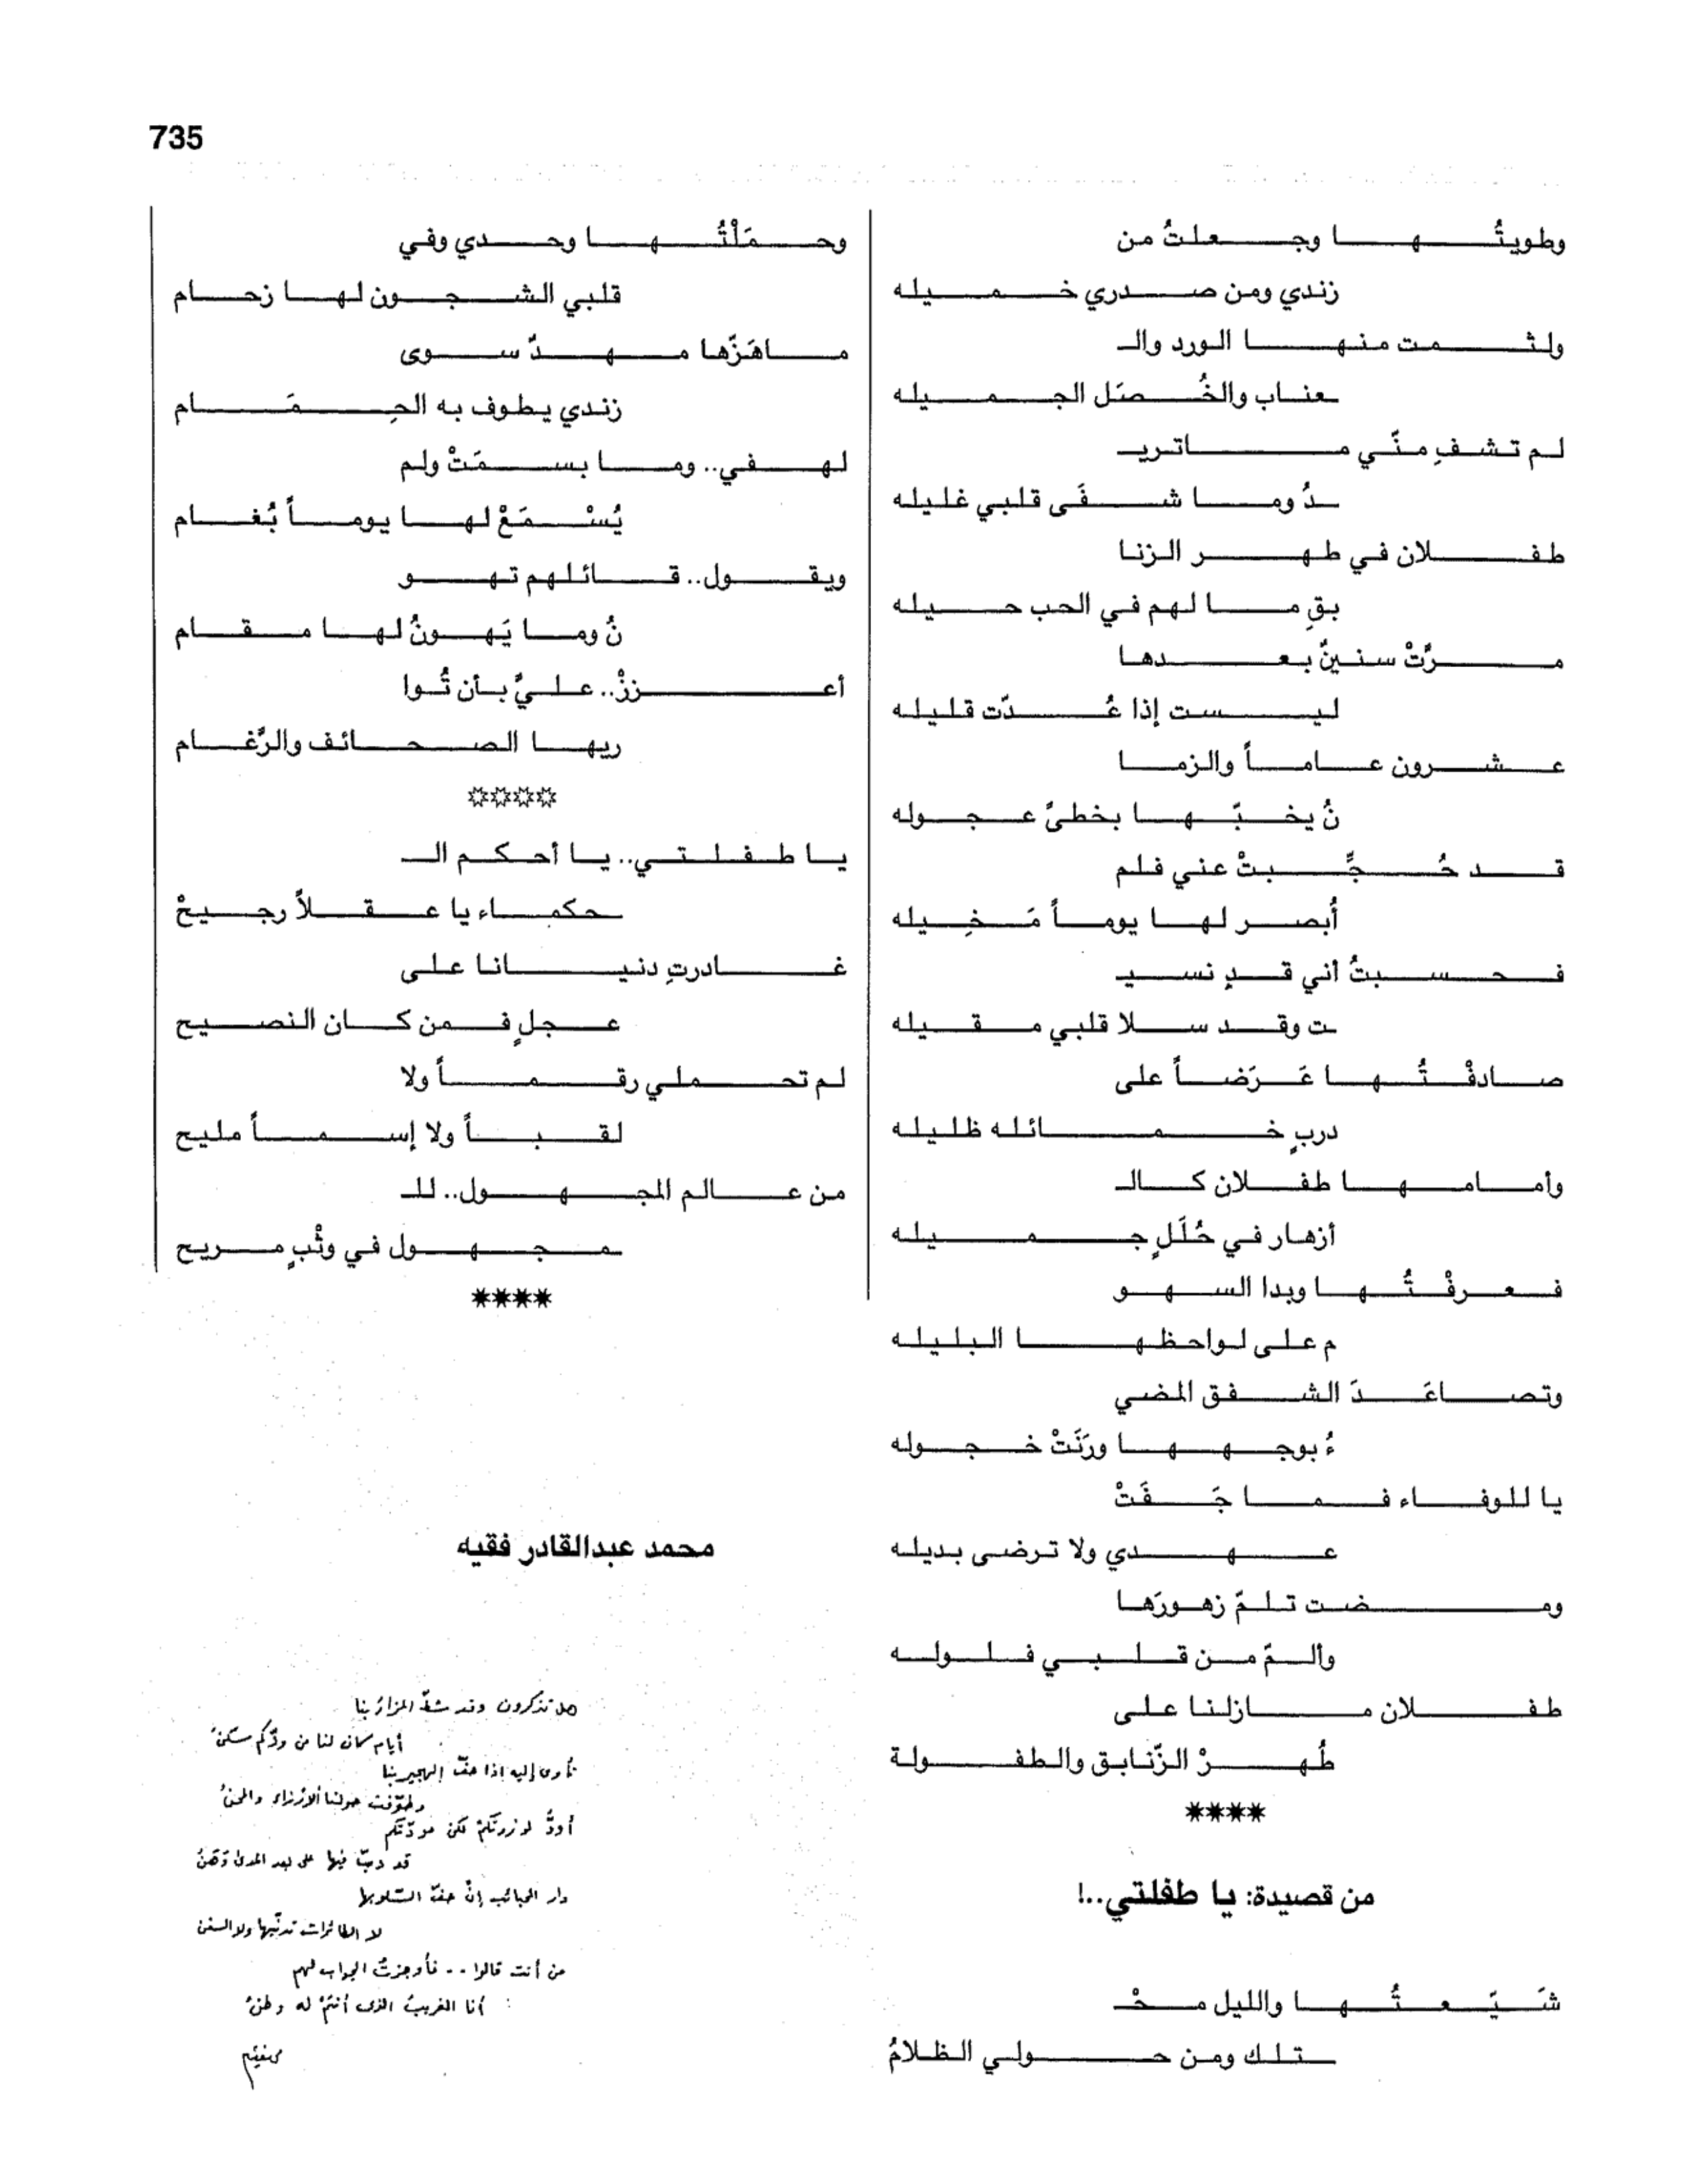 735
وطويتُها وجعلتُ من
زندي ومن صدري خميله
ولثمت منها الورد والـ
ـعناب والخُصَل الجميله
لم تشفِ منّي ماتريـ
ـدُ وما شفَى قلبي غليله
طفلان في طهر الزنا
بقِ ما لهم في الحب حيله
مرَّتْ سنينٌ بعدها
ليست إذا عُدّت قليله
عشرون عاماً والزما
نُ يخبّها بخطىً عجوله
قد حُجِّبتْ عني فلم
أُبصر لها يوماً مَخِيله
فحسبتُ أني قدٍ نسيـ
ـت وقد سلا قلبي مقيله
صادفْتُها عَرَضاً على
دربٍ خمائله ظليله
وأمامها طفلان كالـ
أزهار في حُلَلٍ جميله
فعرفْتُها وبدا السهو
م على لواحظها البليله
وتصاعَدَ الشفق المضي
ءُ بوجهها ورَنَتْ خجوله
يا للوفاء فما جَفَتْ
عهدي ولا ترضى بديله
ومضت تلمّ زهورَها
وألمّ من قلبي فلوله
طفلان مازلنا على
طُهرْ الزّنابق والطفولة
****
من قصيدة: يا طفلتي..!
شَيّعتُها والليل محْـ
ـتلك ومن حولي الظلامُ
وحمَلْتُها وحدي وفي
قلبي الشجون لها زحام
ماهَزّها مهدّ سوى
زندي يطوف به الحِمَام
لهفي.. وما بسمَتْ ولم
يُسْمَعْ لها يوماً بُغام
ويقول.. قائلهم تهو
نُ وما يَهونُ لها مقام
أعززْ.. عليَّ بأن تُوا
ريها الصحائف والرَّغام
****
يا طفلتي.. يا أحكم الـ
ـحكماء يا عقلاً رجيحْ
غادرتِ دنيانا على
عجلٍ فمن كان النصيح
لم تحملي رقماً ولا
لقباً ولا إسماً مليح
من عالم المجهول.. للـ
ـمجهول في وثْبٍ مريح
****
محمد عبدالقادر فقيه
هل تذكرون وقد شطّ المزارُ بنا
أيام كان لنا من ودّكم سكنُ
نأوي إليه اذا حفّ الهجير بنا
وطوّفت حولنا ألأرزاء والمحنُ
أودُّ لو زرتكمْ لكن مودّتكم
قد دبّ فيها على بعد المدى وَهَنُ
دار الحبائب إنْ حفّ السّلو بها
لا الطائرات تدنّيها ولا السفن
من أنت قالوا .. فأوجزتُ الجواب لهم
أنا الغريبُ الذى أنتمْ له وطنُ